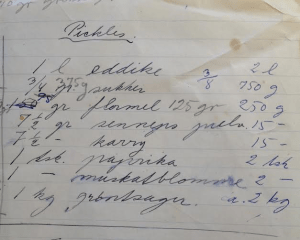 Pickles.
1 l eddike 2 l
3/8 375 gr sukker 3/8 750 g
gr flamel 125 gr 250 g
7 1/2 gr senneps pulv. 15 -
7 1/2 - karry 15 -
1 tsk. paprika 2 tsk
1 - muskatblomme 2 -
1 kg grøntsager. a. 2 kg